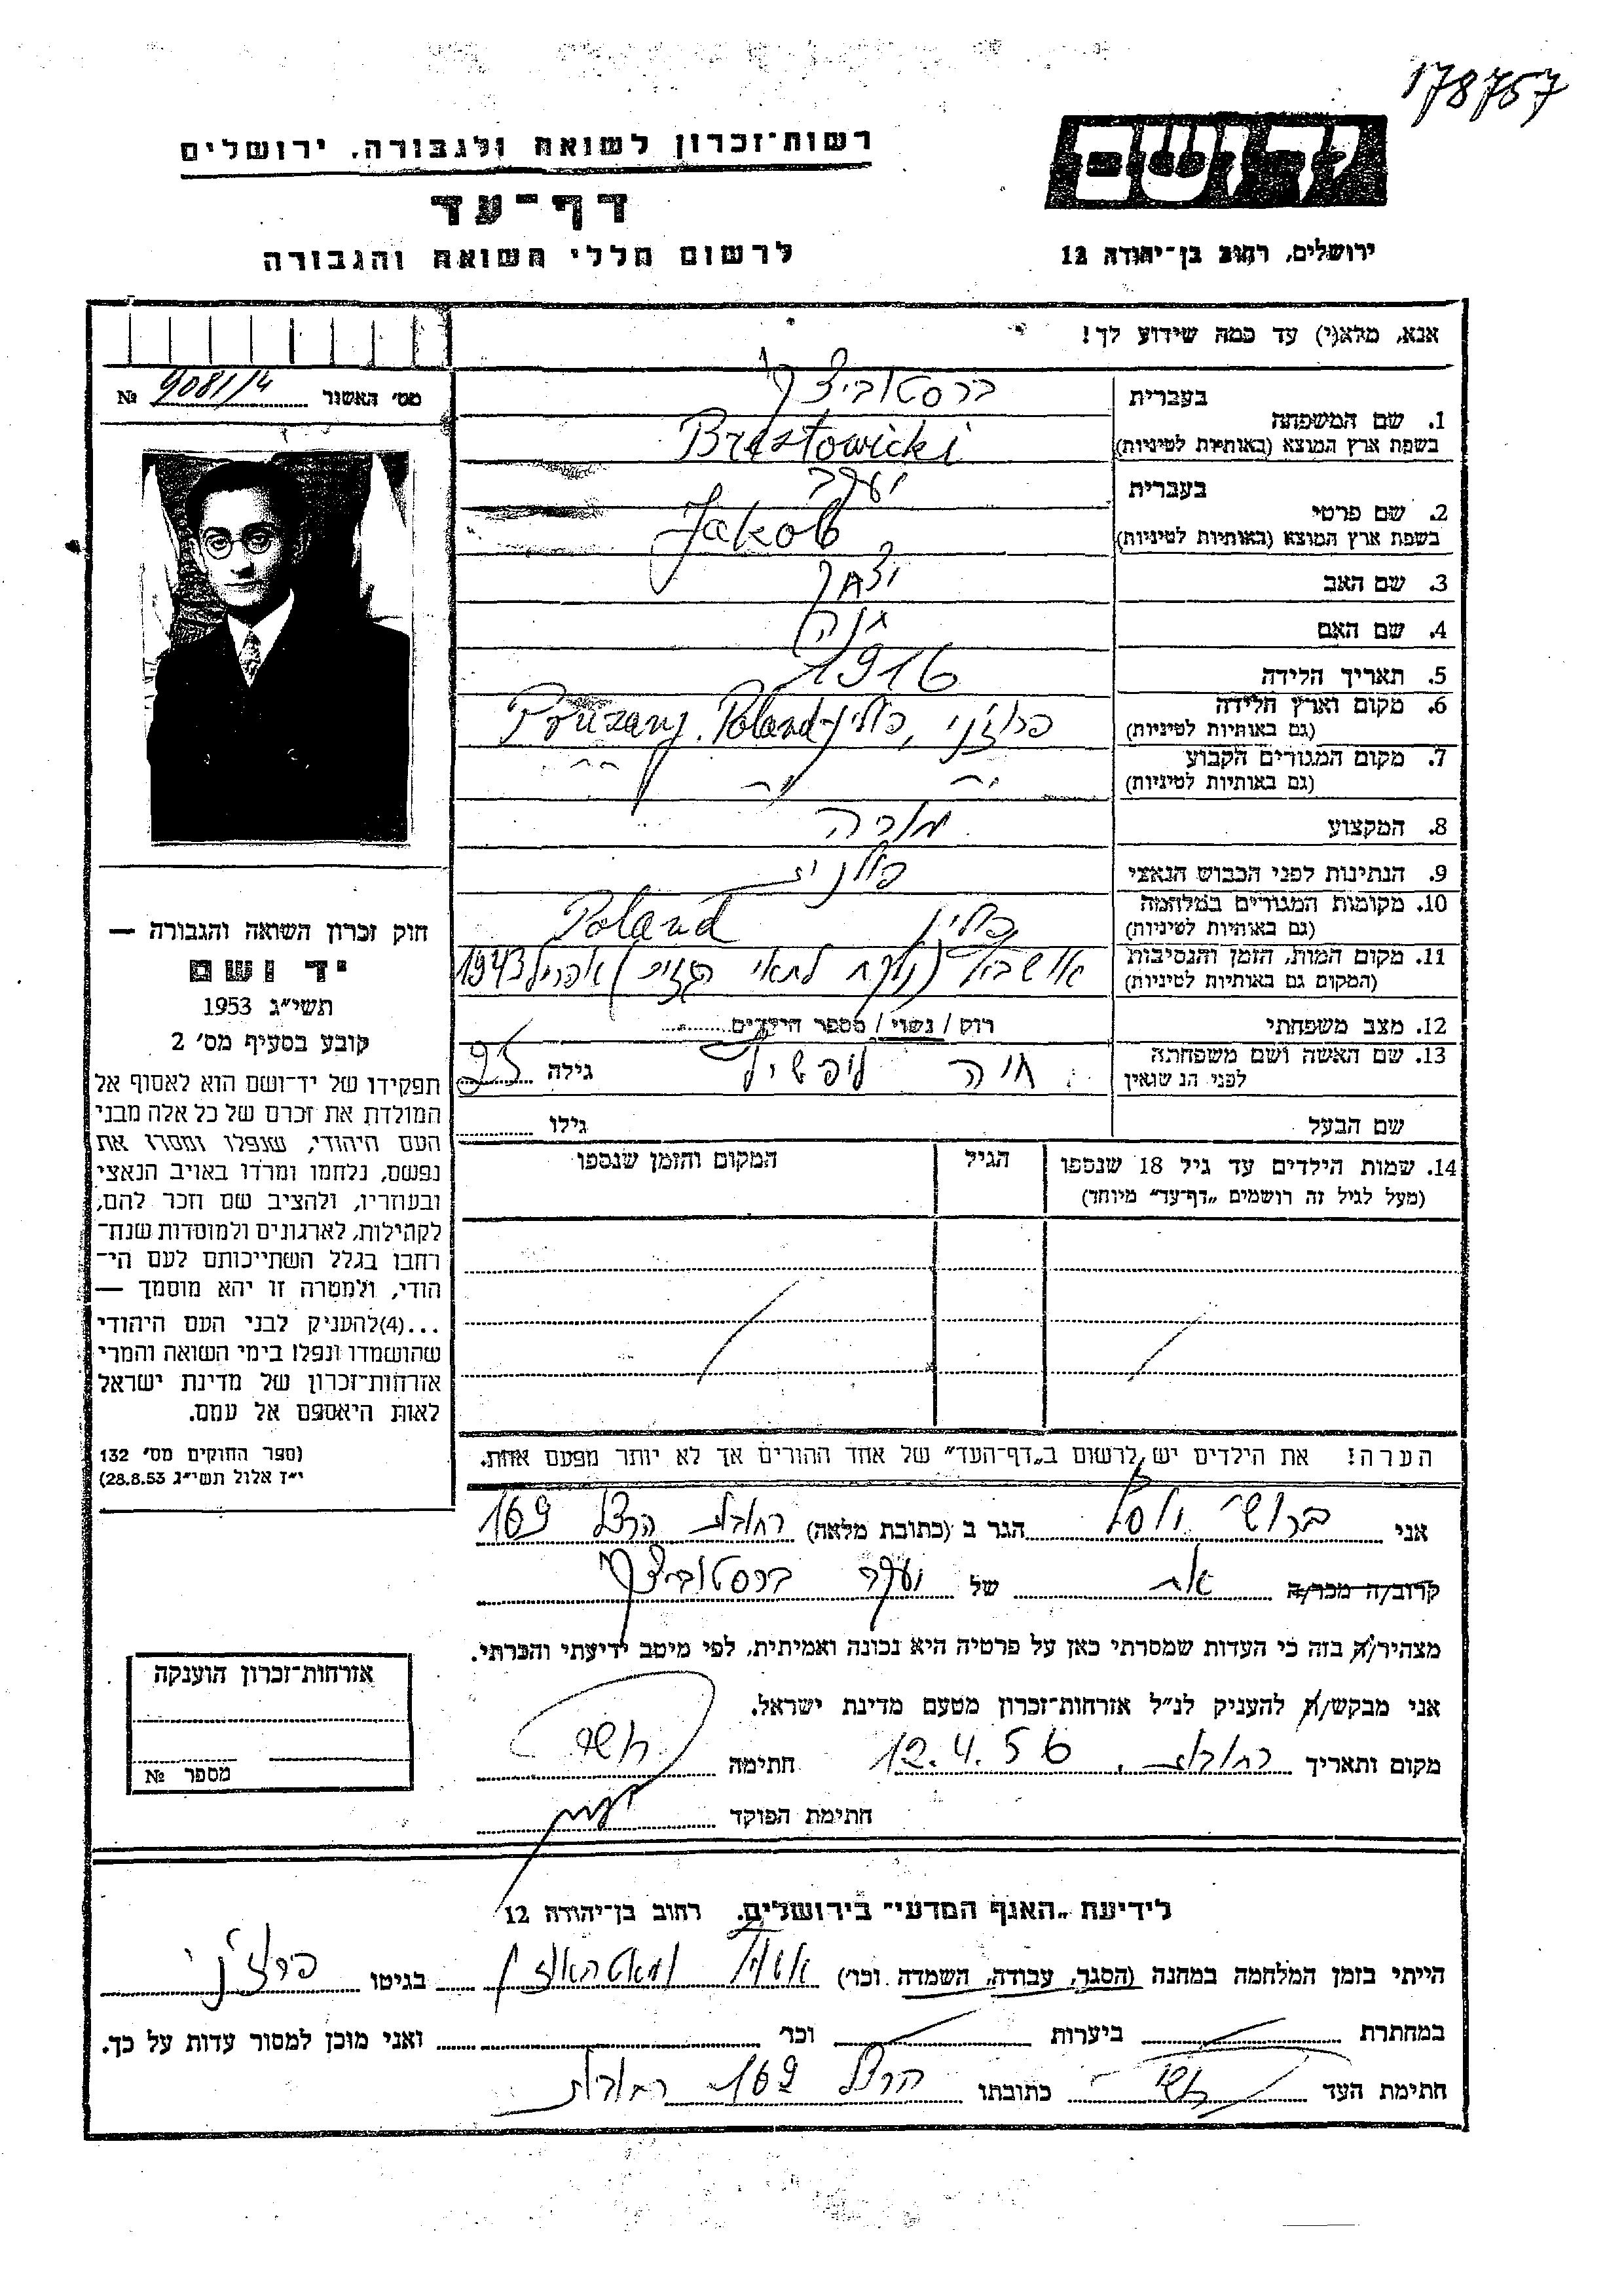 178757
רשות־זכרון לשואה ולגבורה, ירושלים
יד ושם
דף־עד
לרשום חללי השואה והגבורה
ירושלים, רחוב בן־יהודה 12
אנא, מלא(י) עד כמה שידוע לך!
מס׳ האשור 9081/4 №
1. שם המשפחה
בעברית ברסטוביצקי
בשפת ארץ המוצא (באותיות לטיניות) Brestowicki
2. שם פרטי
בעברית יעקב
בשפת ארץ המוצא (באותיות לטיניות) Jakob
3. שם האב יצחק
4. שם האם
5. תאריך הלידה 1916
6. מקום וארץ הלידה פרוז'ני, פולין Pruzany. Poland
(גם באותיות לטיניות)
7. מקום המגורים הקבוע
(גם באותיות לטיניות) -"- -"- -"-
8. המקצוע מורה
9. הנתינות לפני הכבוש הנאצי פולנית
10. מקומות המגורים במלחמה פולין Poland
(גם באותיות לטיניות)
11. מקום המות, הזמן והנסיבות אושביץ (נלקח לתאי הגזים) אפריל 1943
(המקום גם באותיות לטיניות)
12. מצב משפחתי רווק / נשוי / מספר הילדים
13. שם האשה ושם משפחתה חיה גילה 25
לפני הנישואין
שם הבעל גילו
14. שמות הילדים עד גיל 18 שנספו הגיל המקום והזמן שנספו
(מעל לגיל זה רושמים „דף־עד" מיוחד)
הערה! את הילדים יש לרשום ב„דף־העד" של אחד ההורים אך לא יותר מפעם אחת.
חוק זכרון השואה והגבורה —
יד ושם
תשי"ג 1953
קובע בסעיף מס׳ 2
תפקידו של יד־ושם הוא לאסוף אל
המולדת את זכרם של כל אלה מבני
העם היהודי, שנפלו ומסרו את
נפשם, נלחמו ומרדו באויב הנאצי
ובעוזריו, ולהציב שם וזכר להם,
לקהילות, לארגונים ולמוסדות שנח־
רבו בגלל השתייכותם לעם הי־
הודי, ולמטרה זו יהא מוסמך —
...(4)להעניק לבני העם היהודי
שהושמדו ונפלו בימי השואה והמרי
אזרחות־זכרון של מדינת ישראל
לאות היאספם אל עמם.
(ספר החוקים מס׳ 132
י"ז אלול תשי"ג 28.8.53)
אני ברושי יוסף הגר ב (כתובת מלאה) רחובות הרצל 169
קרוב/ה מכר/ה אח של יעקב ברסטוביצקי
מצהיר/ה בזה כי העדות שמסרתי כאן על פרטיה היא נכונה ואמיתית, לפי מיטב ידיעתי והכרתי.
אני מבקש/ת להעניק לנ"ל אזרחות־זכרון מטעם מדינת ישראל.
מקום ותאריך רחובות, 12.4.56 חתימה
חתימת הפוקד
אזרחות־זכרון הוענקה
מספר №
לידיעת „האגף המדעי" בירושלים, רחוב בן־יהודה 12
הייתי בזמן המלחמה במחנה (הסגר, עבודה, השמדה וכו׳) בגיטו פרוז'ני
במחתרת ביערות וכו׳ ואני מוכן למסור עדות על כך.
חתימת העד כתובתו הרצל 169 רחובות